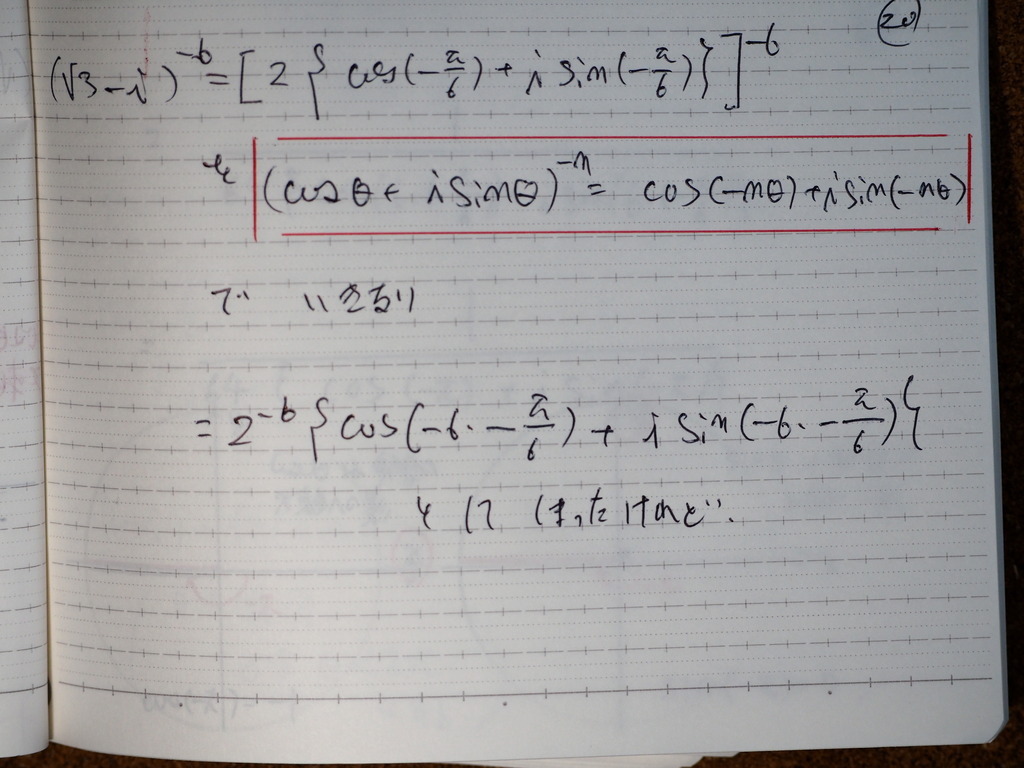 (20)
(√3-i)^{-6} = [2{cos(-π/6)+i sin(-π/6)}]^{-6}
(cosθ+i sinθ)^{-n} = cos(-nθ)+i sin(-nθ)
で
= 2^{-6}{cos(-6・-π/6)+i sin(-6・-π/6)}
けれど".